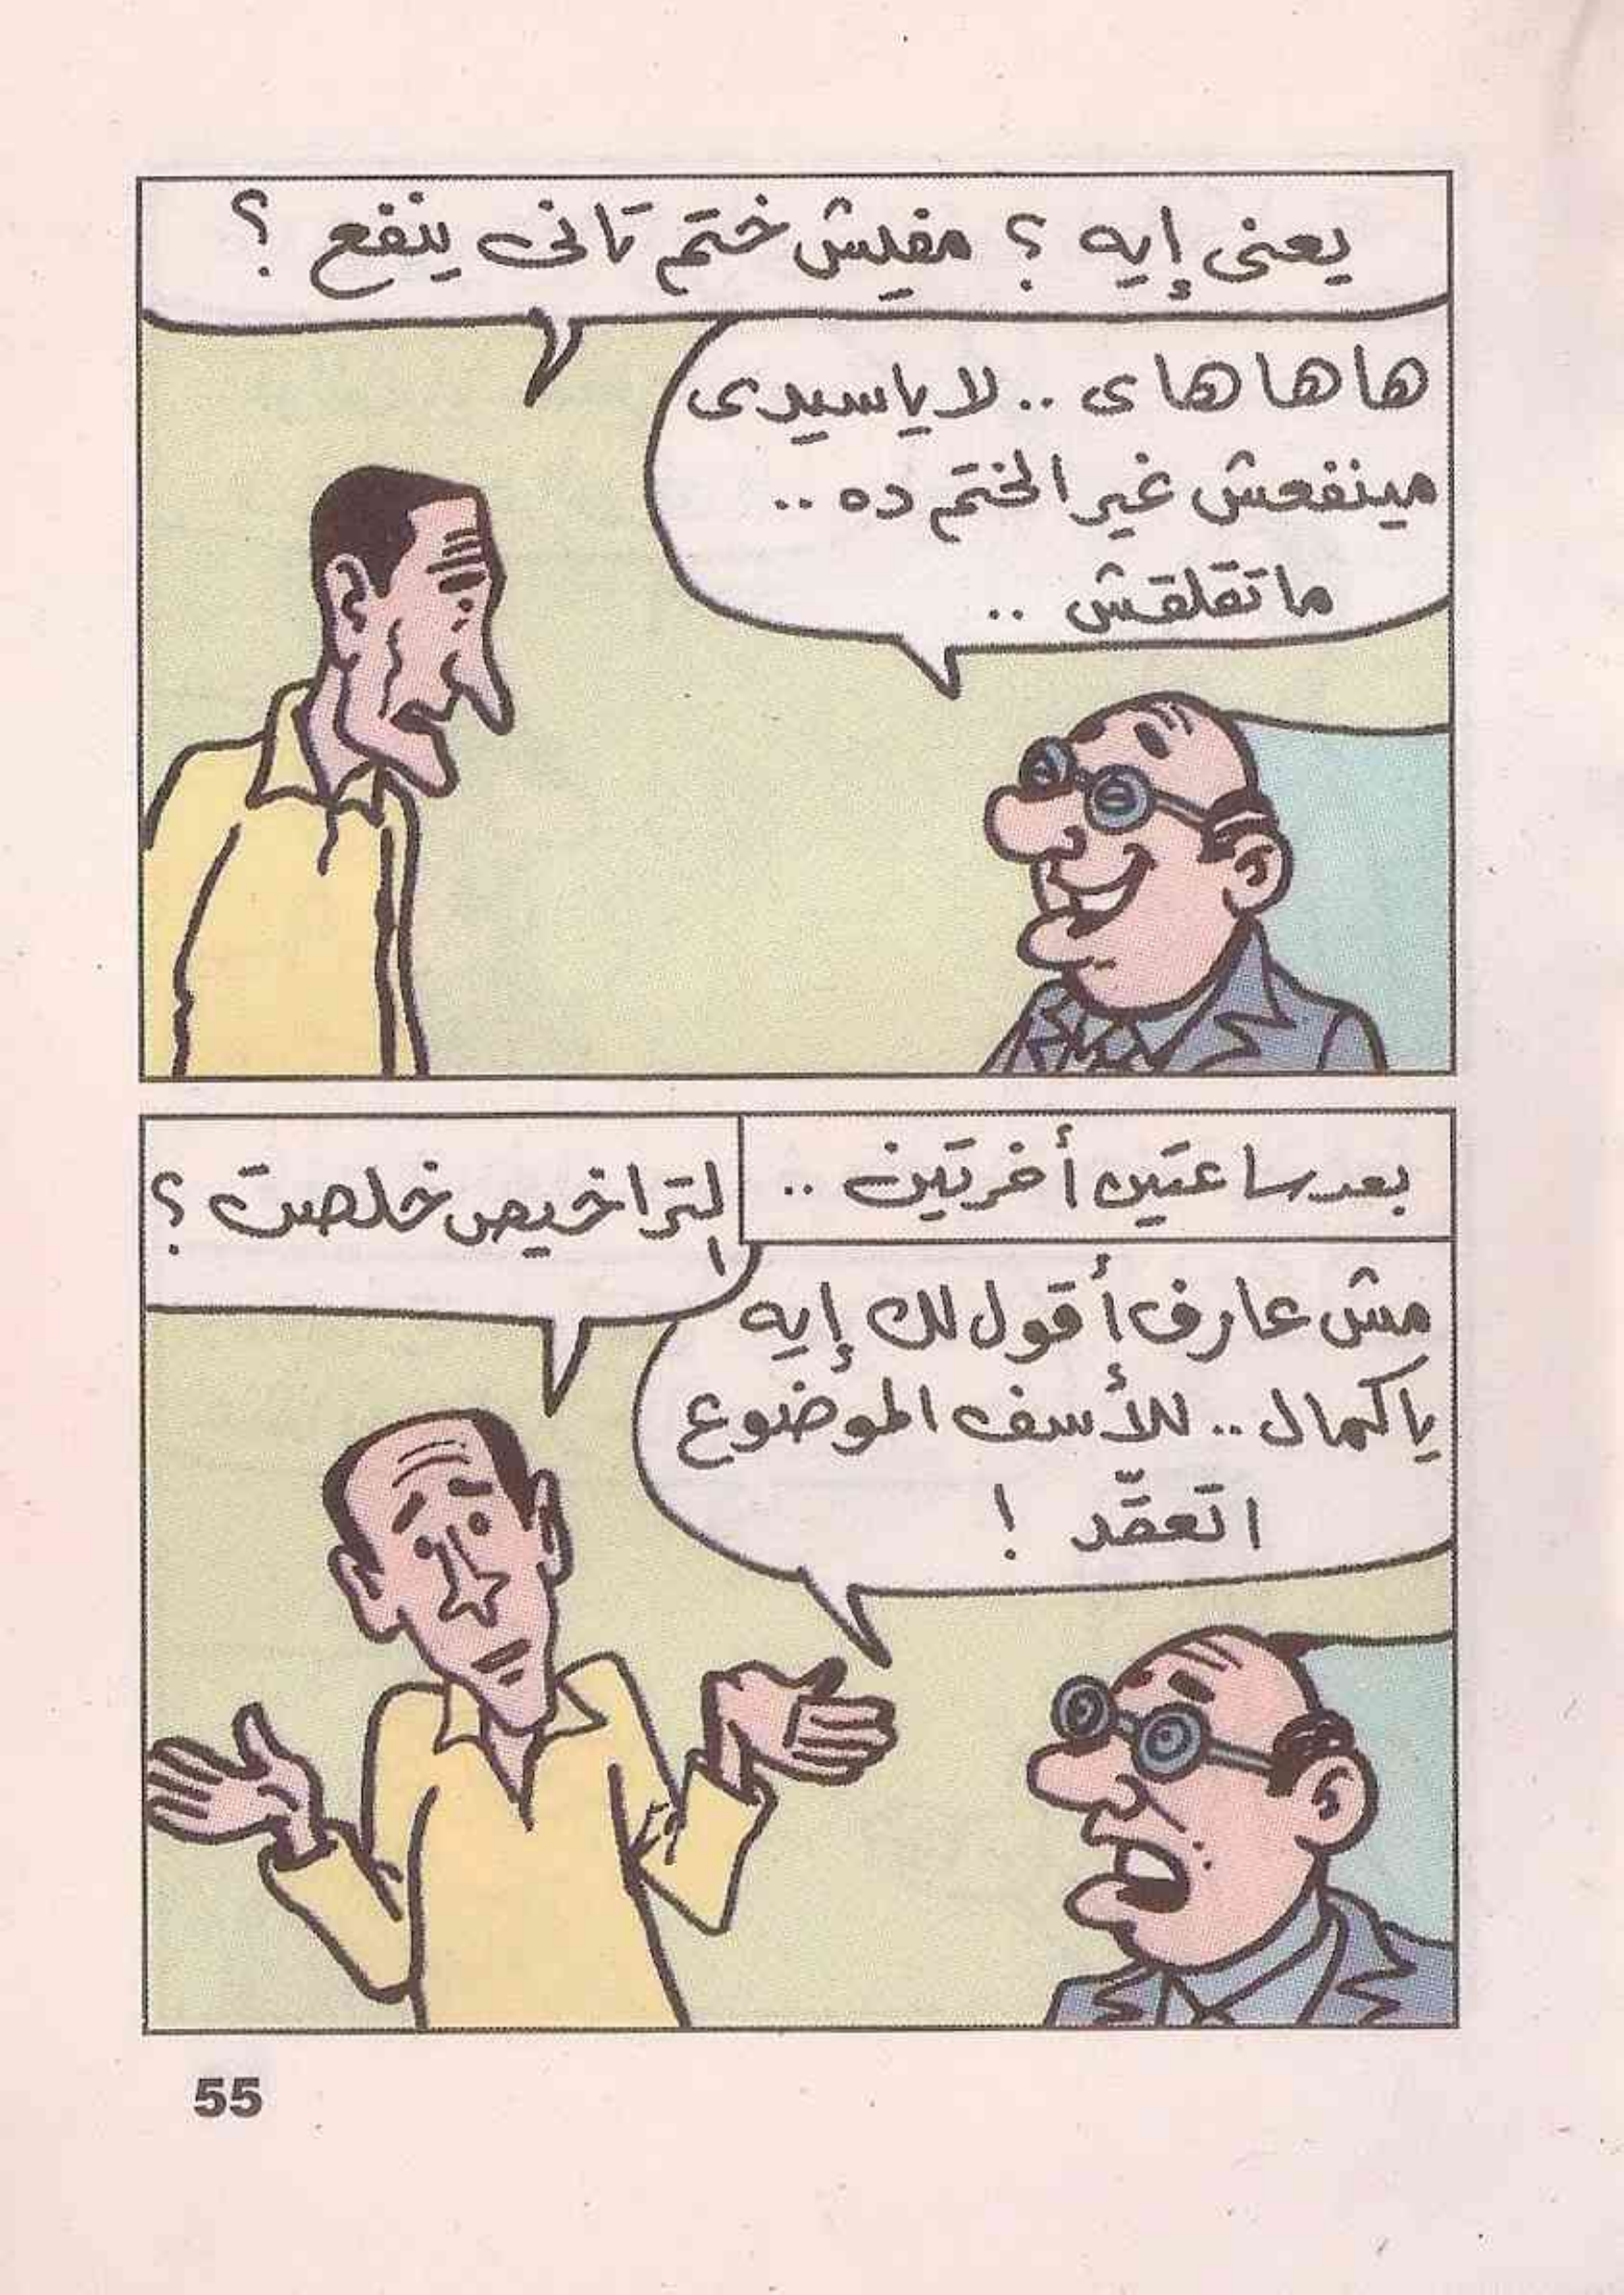 يعنى إيه ؟ مفيش ختم تانى ينفع ؟
ها ها هاى .. لا يا سيدى
مينفعش غير الختم ده ..
ما تقلقش ..
بعد ساعتين أخرتين ..
التراخيص خلصت ؟
مش عارف أقول لك إيه
يا كمال .. للأسف الموضوع
اتعقّد !
55